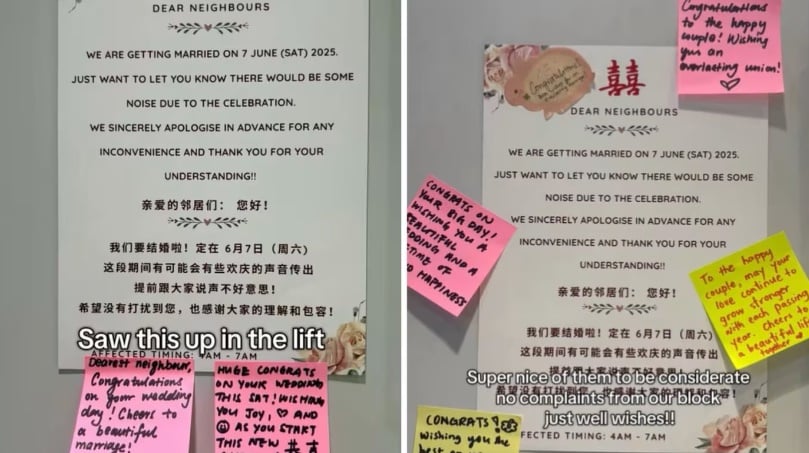 DEAR NEIGHBOURS
WE ARE GETTING MARRIED ON 7 JUNE (SAT) 2025.
JUST WANT TO LET YOU KNOW THERE WOULD BE SOME
NOISE DUE TO THE CELEBRATION.
WE SINCERELY APOLOGISE IN ADVANCE FOR ANY
INCONVENIENCE AND THANK YOU FOR YOUR
UNDERSTANDING!!
亲爱的邻居们： 您好！
我们要结婚啦！定在 6月7日（周六）
这段期间有可能会有些欢庆的声音传出
提前跟大家说声不好意思！
希望没有打扰到您，也感谢大家的理解和包容！
Saw this up in the lift
AFFECTED TIMING: 4AM - 7AM
Dearest neighbour,
Congratulations
on your wedding
day! Cheers to
a beautiful
marriage!
HUGE CONGRATS
ON YOUR WEDDING
THIS SAT! WISHING
YOU JOY, AND
AS YOU START
THIS NEW
Congratulations
to the happy
couple! Wishing
you an
everlasting union!
Congratulations!
囍
DEAR NEIGHBOURS
WE ARE GETTING MARRIED ON 7 JUNE (SAT) 2025.
JUST WANT TO LET YOU KNOW THERE WOULD BE SOME
NOISE DUE TO THE CELEBRATION.
WE SINCERELY APOLOGISE IN ADVANCE FOR ANY
INCONVENIENCE AND THANK YOU FOR YOUR
UNDERSTANDING!!
亲爱的邻居们： 您好！
我们要结婚啦！定在 6月7日（周六）
这段期间有可能会有些欢庆的声音传出
CONGRATS ON
YOUR BIG DAY!
WISHING YOU A
BEAUTIFUL
WEDDING AND A
OF
HAPPINESS
To the happy
couple, may your
love continue to
grow stronger
with each passing
year. Cheers to
a beautiful life
together
Super nice of them to be considerate
no complaints from our block
just well wishes!!
AFFECTED TIMING: 4AM - 7AM
CONGRATS!
Wishing you the
best